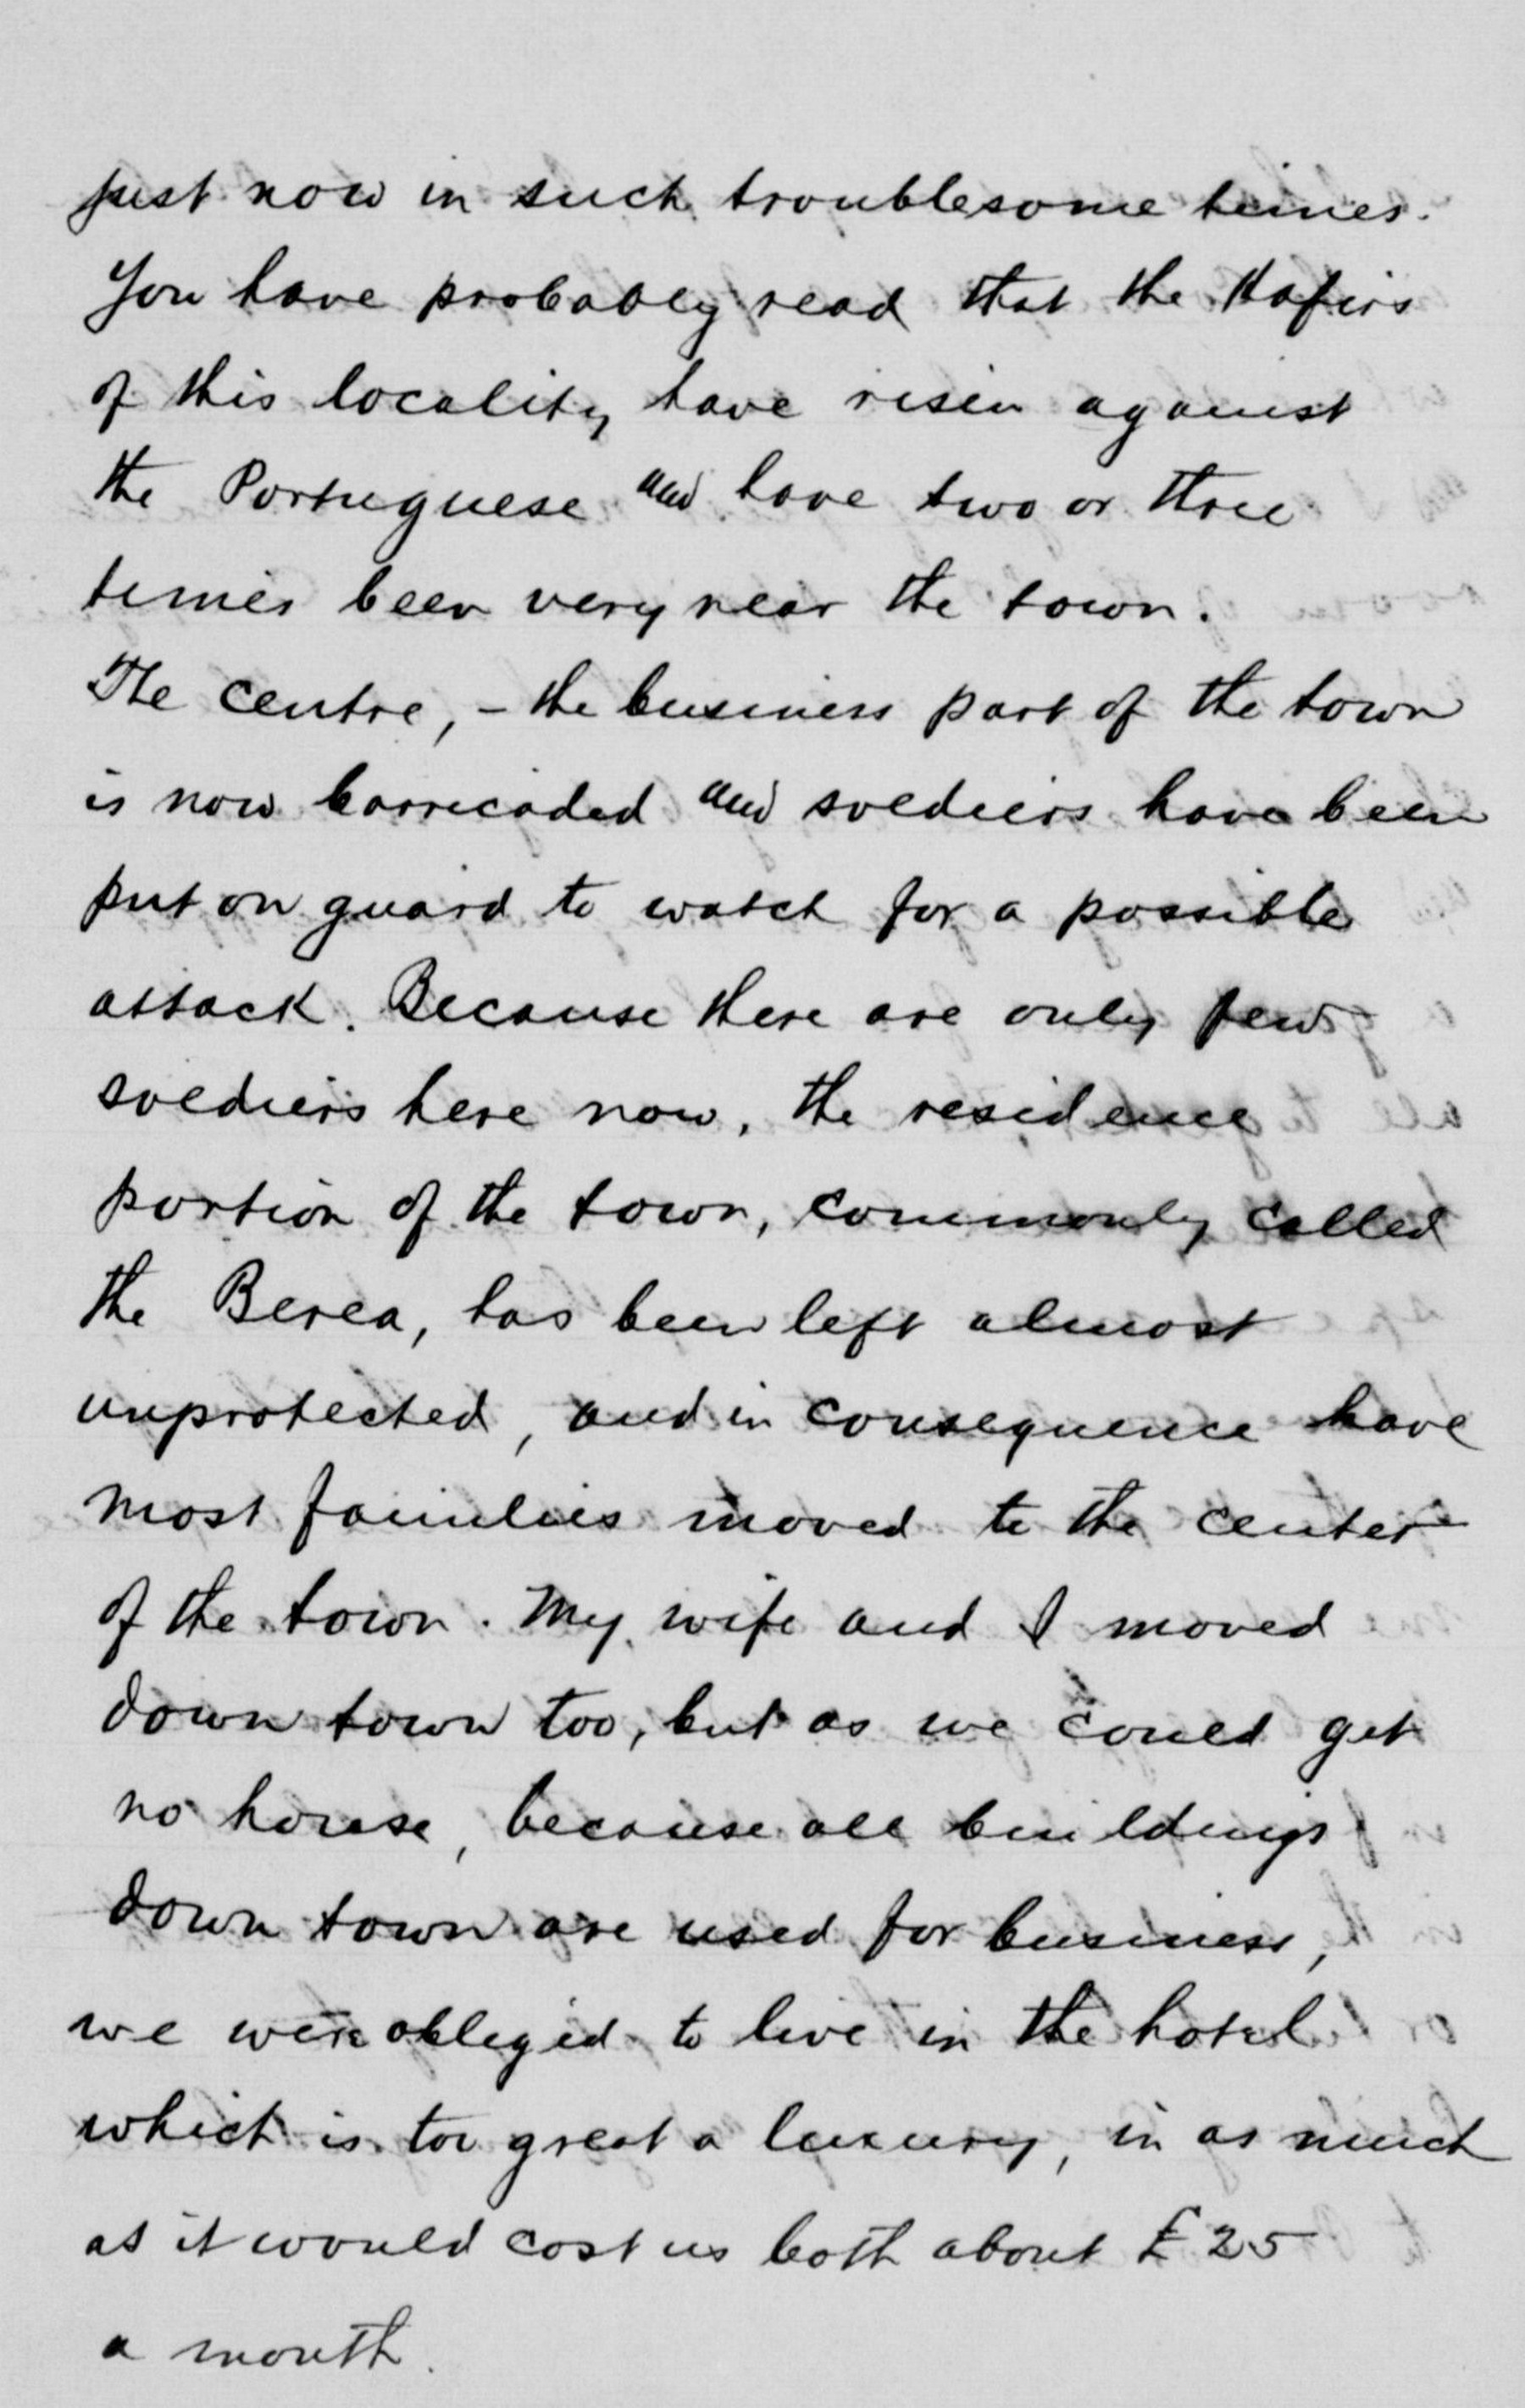 just now in such troublesome times.
You have probably read that the Kafirs
of this locality have risen against
the Portuguese and have two or three
times been very near the town.
The centre, - the business part of the town
is now barricaded and soldiers have been
put on guard to watch for a possible
attack. Because there are only few
soldiers here now, the residence
portion of the town, commonly called
the Berea, has been left almost
unprotected, and in consequence have
most families moved to the center
of the town. My wife and I moved
down town too, but as we could get
no house, because all buildings
down town are used for business,
we were obliged to live in the hotel
which is too great a luxury, in as much
as it would cost us both about £25
a month.